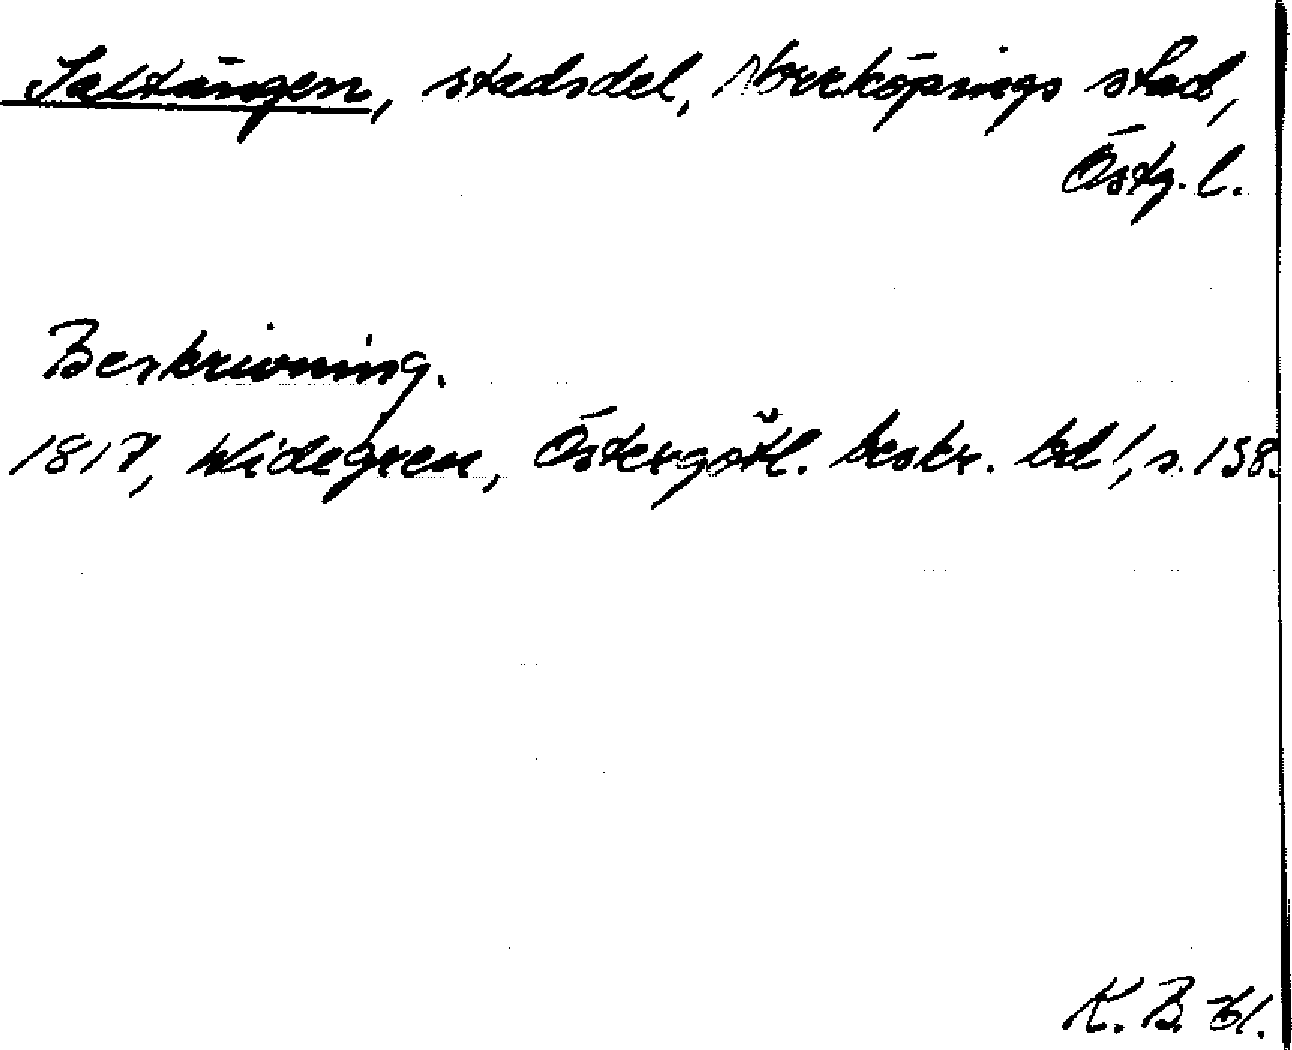 Saltängen, stadsdel, Norrköpings stad,
Östg. l.
Beskrivning.
1817, Widegren, Östergötl. beskr. bd 1, s. 198.
K. B.